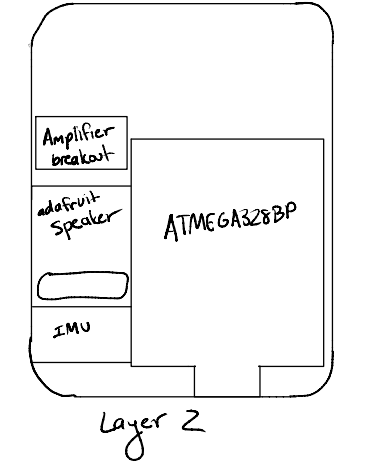 Amplifier
breakout
adafruit
Speaker
ATMEGA328BP
IMU
Layer 2